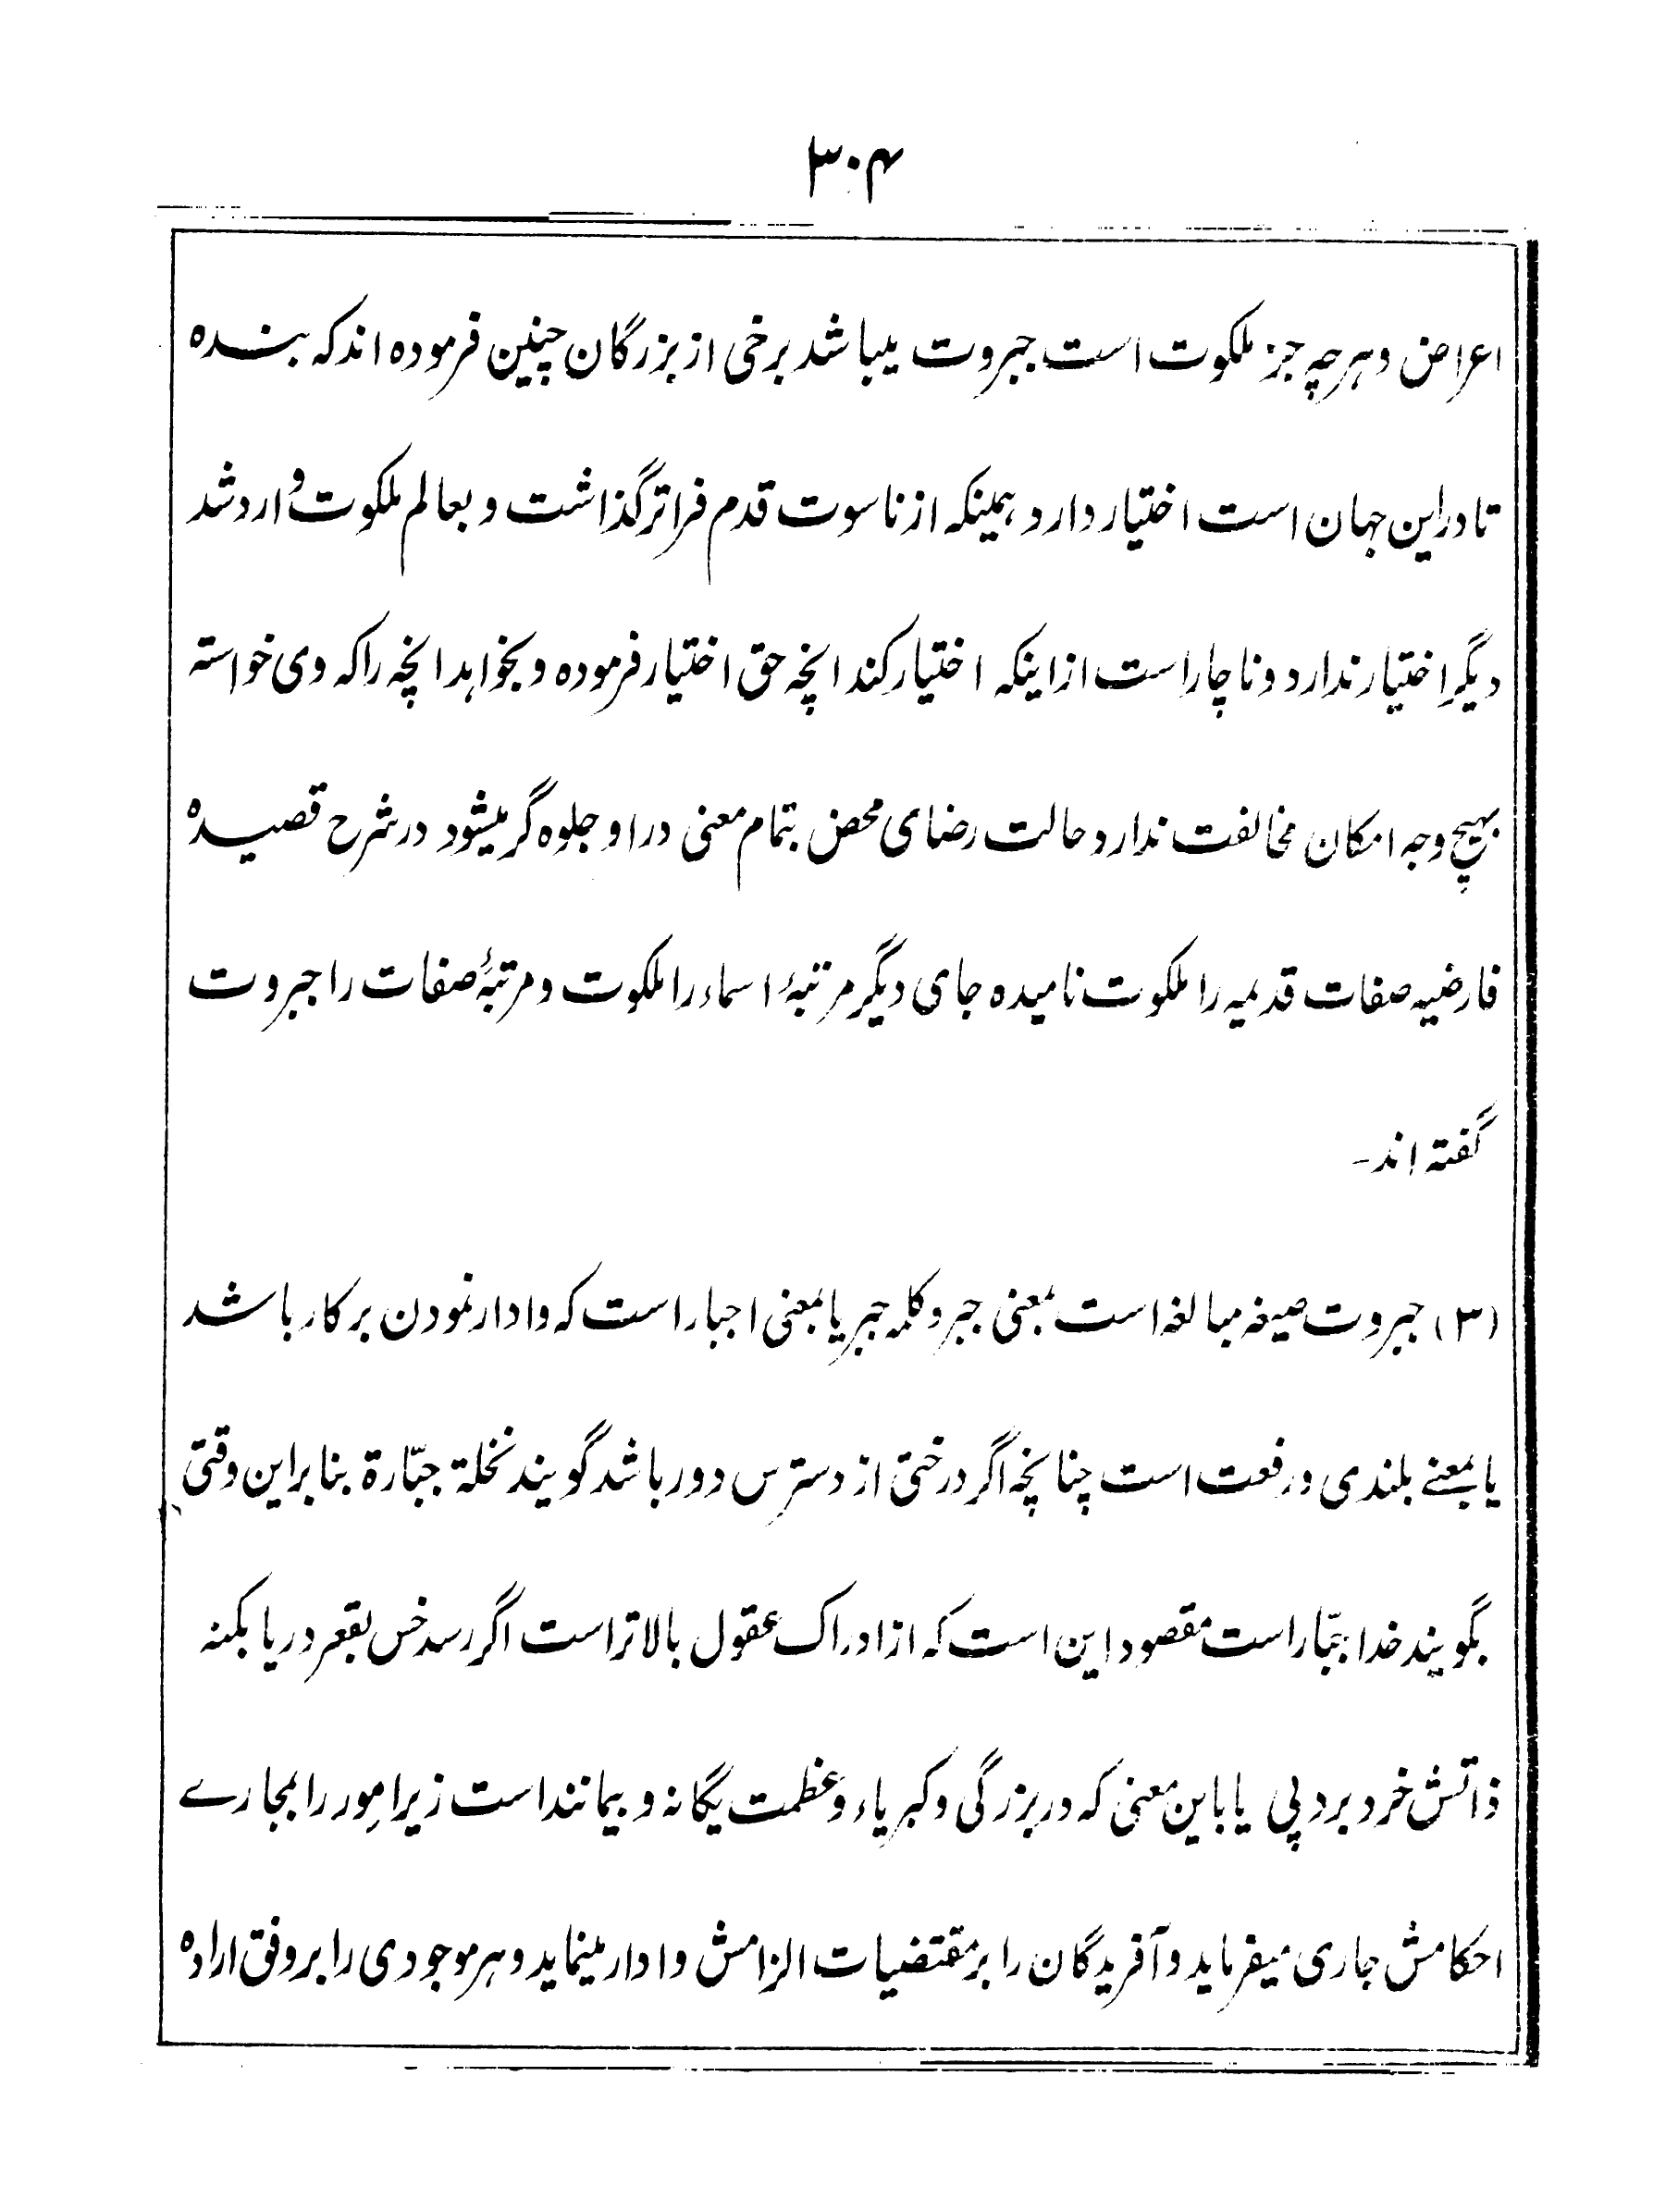 ۳۰۴
اعراض و هرچه جز ملکوت است جبروت میباشد برخی از بزرگان چنین فرموده اند که بنده
تا در این جهان است اختیار دارد همینکه از ناسوت قدم فراتر گذاشت و بعالم ملکوت وارد شد
دیگر اختیار ندارد و ناچار است از اینکه اختیار کند انچه حق اختیار فرموده و بخواهد انچه را که وی خواسته
بهیچ وجه امکان مخالفت ندارد و حالت رضای محض بتمام معنی در او جلوه گر میشود در شرح قصیده
فارضیه صفات قدیمیه را ملکوت نامیده جای دیگر مرتبهٔ اسماء را ملکوت و مرتبهٔ صفات را جبروت
گفته اند -
(۳) جبروت صیغه مبالغه است بمعنی جبر و کلمه جبر یا بمعنی اجبار است که وادار نمودن بر کار باشد
یا بمعنے بلندی و رفعت است چنانچه اگر درختی از دسترس دور باشد گویند نخلة جبّارة بنابراین وقتی
بگویند خدا جبّار است مقصود این است که از ادراک عقول بالاتر است اگر رسد خس بقعر دریا بکنه
ذاتش خرد برد پی یا باین معنی که در بزرگی و کبریاء و عظمت یگانه و بیمانند است زیرا امور را بمجارے
احکامش جاری میفرماید و آفریدگان را بر مقتضیات الزامش وادار مینماید و هر موجودی را بر وفق اراده